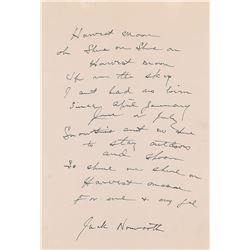 Harvest Moon
oh Shine on Shine on
Harvest moon
Up in the sky
I ain't had no lovin
Since April January
June or July
Snowtime ain't no time
to stay outdoors
and spoon
So shine on shine on
Harvest moon
For me & my gal
Jack Norworth